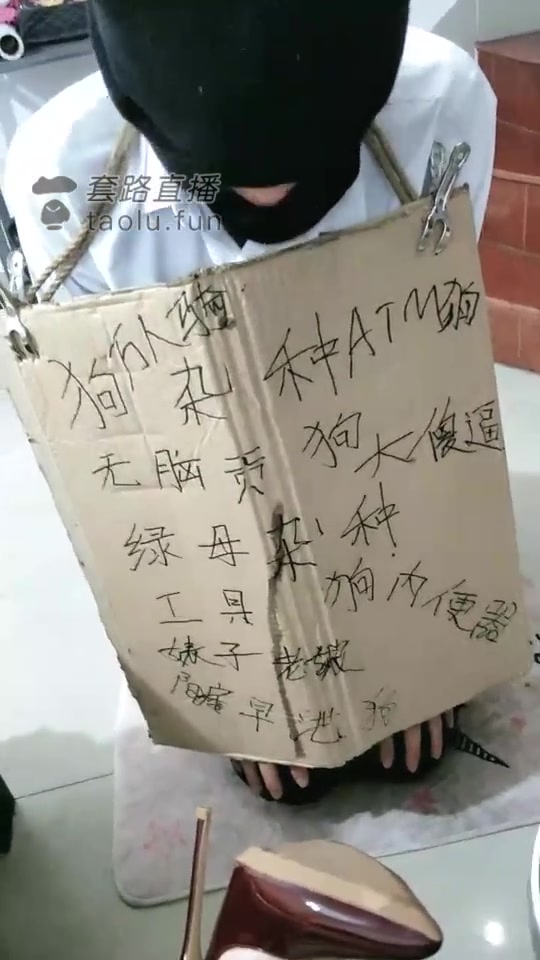 套路直播
taolu.fun
狗
杂种ATM狗
无脑贡狗大傻逼
绿母杂种
工具狗肉便器
婊子老娘
早泄狗